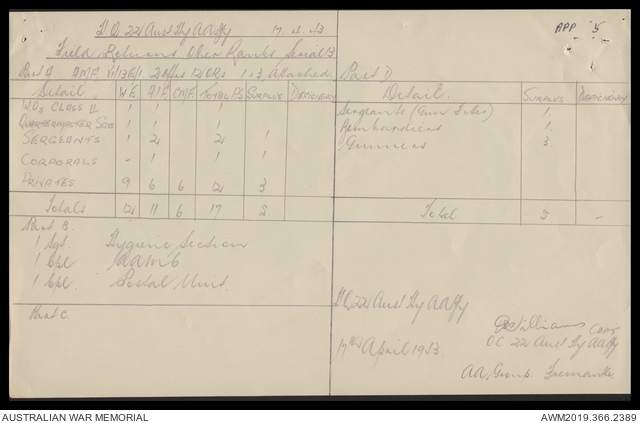 H Q 22 Aust Hy AA Bty 17. 4. 43
APP 5
Field Returns Other Ranks Serial 3
Part A AMF VI/13E/1. 2 Offrs 12 ORs 1 & 3 Attached
Detail. W.E. AIF CMF. TOTAL P.S. SURPLUS DEFICIENCY
WOs CLASS II 1 1 1
QUARTERMASTER SGTS 1 1 1
SERGEANTS 1 2 2 1
CORPORALS - 1 1 1
PRIVATES 9 6 6 12 3
Totals 12 11 6 17 5.
Part B.
1 Sgt. Hygiene Section
1 Cpl AAMC
1 Cpl. Postal Unit.
Part C.
Part D
Detail. SURPLUS DEFICIENCY
Sergeants (Gun Fitter) 1.
Bombardiers 1.
Gunners 3
Total 5 -
HQ 22 Aust Hy AA Bty
17th April 1943.
Williams CAPT
OC 22 Aust Hy AA Bty
AA. Group. Fremantle.
AUSTRALIAN WAR MEMORIAL
AWM2019.366.2389